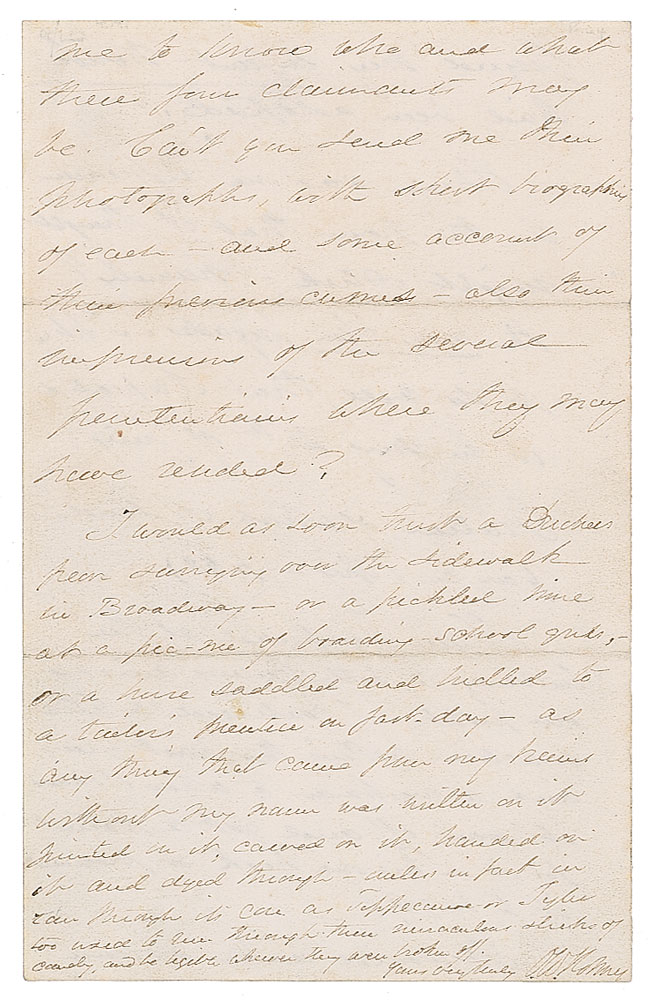 me to know who and what
these four claimants may
be. Can't you send me their
photographs, with short biographies
of each – and some account of
their previous crimes – also their
impressions of the several
penitentiaries where they may
have resided?
I would as soon trust a Duchess
pear swinging over the sidewalk
in Broadway – or a pickled lime
at a pic-nic of boarding-school girls, –
or a horse saddled and bridled to
a tailor's prentice on fast-day – as
any thing that came from my brains
without my name was written on it
printed in it, carved on it, branded on
it and dyed through – unless in fact it
ran through its core as Tippecanoe or Tyler
too used to run through those miraculous sticks of
candy, and be legible wherever they were broken off
Yours very truly O W Holmes